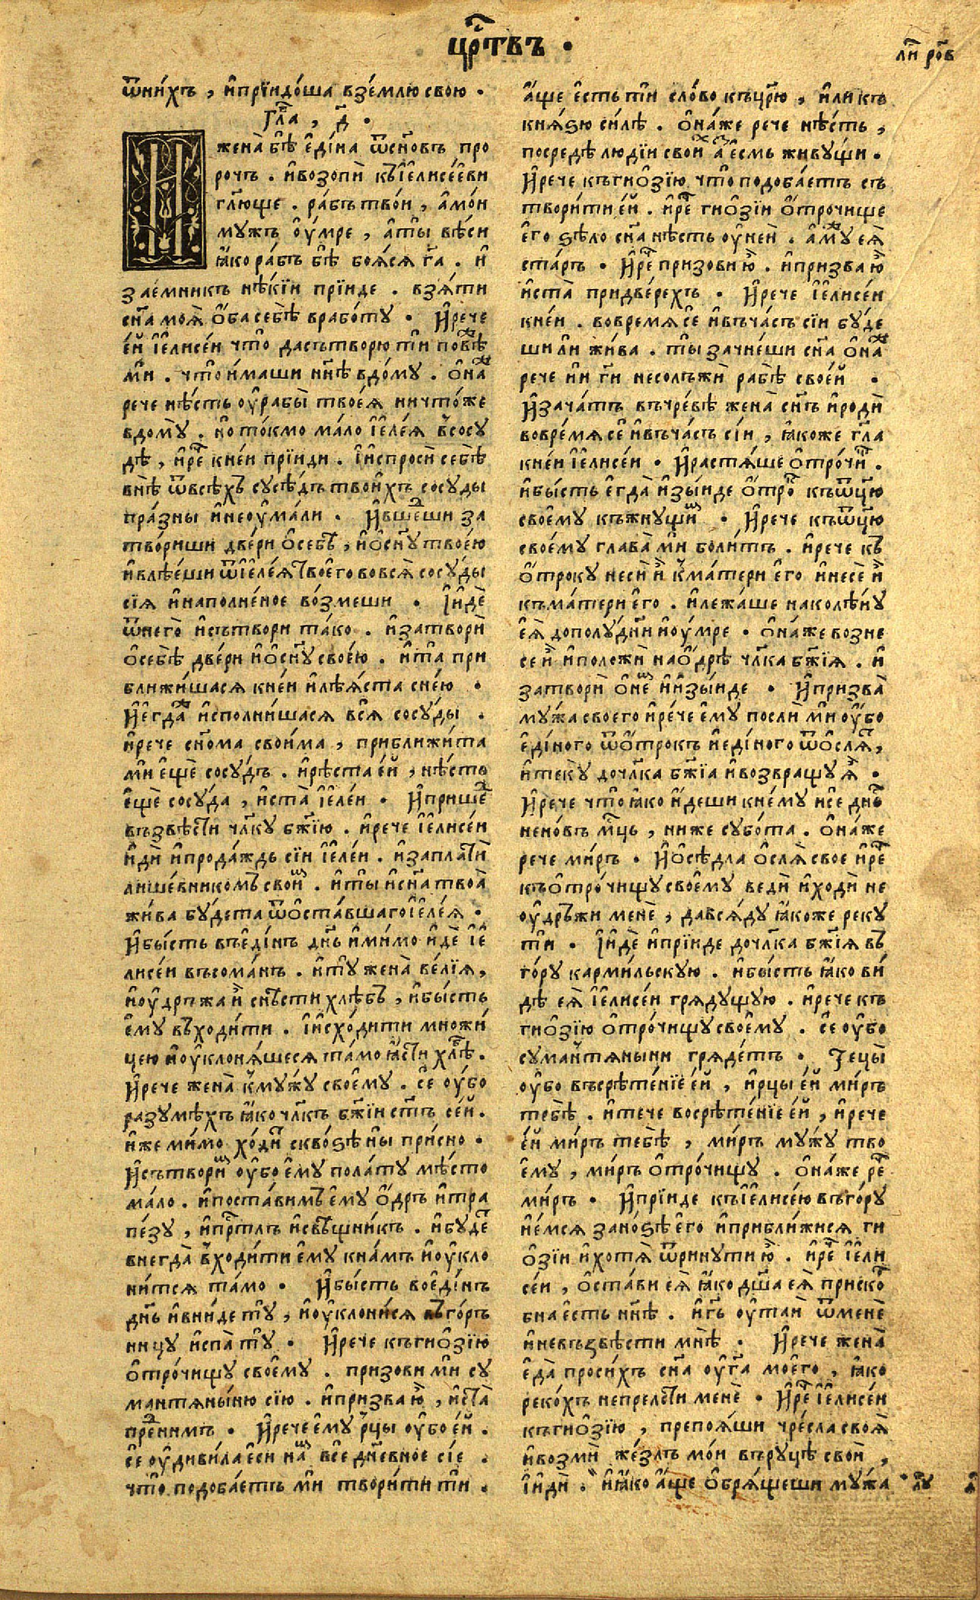 цр҃твъ ·
ли҃ ро҃в
ѿни́хъ , и҆прїидо́ша взе́млю свою .
Гл҃а , д҃ .
И
жена̀ бѣ̀ є҆ди́на ѿсн҃овъ про
рочъ . и҆возопѝ къ̀і҆елисе́еви
гл҃юще . ра́бътво́и , а҆мо́и
му́жъ оу҆́мре , а҆ты̀ вѣ́си
ꙗ҆́ко ра́бъ бѣ̀ боя́ся г҃а . и҆
заємникъ нѣ́кїи прїи́де . взя́ти
сн҃а моя̀ о҆́ба себѣ̀ врабо́ту . И҆рече
є҆́и і҆елисе́и что̀ да съ́творю ти по́вѣж
мѝ . что̀ и҆́маши нн҃ѣ вдо́му . о҆на́ж
рече нѣ́сть оу҆рабы̀ твоея̀ ничто́же
вдому̀ . но то́кмо ма́ло і҆еле́я в̾сосу
дѣ , и҆рєⷱ҇ кне́и прїиди . и҆испросѝ себѣ̀
внѣ̀ ѿвсѣ́хъ сусѣ́дъ твои́хъ сосу́ды
пра́зны и҆неоу҆ма́ли . И҆вше́ши за
тво́риши две́ри о҆себѣ̀ , и҆о҆сн҃у твое́ю
и҆влѣ́еши ѿі҆еле́я твоего вовся̀ сосу́ды
сїя и҆наполне́ное во́змеши . И҆и҆дѐ
ѿнего̀ и҆сътвори та́ко . и҆затворѝ
о҆себѣ̀ две́ри и҆о҆сн҃у свое́ю . и҆та̀ при
бли́жишася кне́и и҆лѣя́ста сне́ю .
И҆є҆гда́ж и҆спо́лнишася вся̀ сосу́ды .
и҆рече сн҃ома свои́ма , прибли́жита
мѝ є҆щѐ сосу́дъ . и҆рѣ́ста є҆́и , нѣ́сть
є҆щѐ сосу́да , и҆ста̀ і҆еле́и . И҆прише́д
възвѣсти чл҃ку бж҃їю . и҆рече і҆елисе́и
и҆дѝ и҆прода́ждь сїи і҆еле́и . и҆заплатѝ
лише́вникомъ свои́м . и҆ты̀ и҆сн҃а твоа̀
жи́ва бу́дета ѿо҆ста́вшаго і҆еле́я .
И҆бы́сть въє҆ди́нъ дн҃ь и҆ми́мо и҆́де і҆е
лисе́и въсома́нъ . и҆ту̀ жена̀ ве́лїя ,
и҆оу҆дръ́жа и҆̀ снѣ́сти хлѣ́бъ , и҆бы́сть
є҆му̀ въ̀хо́дити . и҆исхо́дити мно́жи
цею и҆оу҆клоня́шеся та́мо ꙗ҆́сти хлѣ́б .
И҆рече жена̀ к̾му́жу своє́му . сѐ оу҆́бо
разумѣ́хъ ꙗ҆́ко чл҃къ бж҃їи ст҃ъ се́й .
и҆́же ми́мо хо́дит скво́зѣ ны̀ при́сно .
И҆сътвори́м оу҆́бо є҆му̀ пола́ту мѣ́сто
ма́ло . и҆поста́вимъ є҆му̀ о҆́дръ и҆тра
пе́зу , и҆прⷭ҇тлъ и҆свѣ́щникъ . и҆бу́дет
внегда̀ в̾ходи́ти є҆му̀ кна́мъ и҆оу҆кло
ни́тся та́мо . И҆бы́сть вое҆ди́нъ
дн҃ь и҆вни́де ту̀ , и҆оу҆клони́ся въго́рь
ницу и҆спа̀ ту̀ . И҆рече къгиѻ҆зі́ю
о҆тро́чищу свое́му . призови мѝ су
мантя́ныню сїю . и҆призва ю҆̀ , и҆ста̀
пре́дни́мъ . И҆рече є҆му̀ рцы оу҆́бо є҆́й .
сѐ оу҆диви́ла є҆сѝ на́м всѐ дн҃евное сїе .
что̀ подоба́етъ мѝ твори́ти тѝ .
а҆́ще є҆́сть тѝ сло́во къцр҃ю , и҆лѝ къ
кня́зю си́лѣ . о҆на́же рече нѣ́сть ,
посредѣ̀ лю́дїи свои́х а҆́з є҆́смь живу́щи .
И҆рече къгиѻ҆зі́ю , что̀ подоба́етъ съ
твори́ти є҆́й . и҆рєⷱ҇ гиѻ҆зі́и о҆тро́чище
є҆го̀ ѕѣло сн҃а нѣ́сть оу҆не́й . а҆му́ж є҆я̀
ста́ръ . И҆рєⷱ҇ призови ю҆̀ . и҆призва ю҆̀
и҆ста̀ придве́рехъ . И҆рече і҆елисе́и
кне́и . вовре́мя сѐ и҆въча́съ сїи бу́де
ши лѝ жи́ва . ты̀ зачне́ши сн҃а о҆на́ж
рече нѝ гн҃и несолъжѝ рабѣ̀ свое́й .
И҆зача́тъ въчре́вѣ жена̀ сн҃ъ и҆родѝ
вовре́мя сѐ и҆въча́съ сїи , ꙗ҆́коже гл҃а
кне́и і҆елисе́и . И҆растя́ше о҆тро́чищ .
и҆бы́сть є҆гда̀ и҆зы́иде о҆́трок къѿц҃ю
своє́му къжну́щим . И҆рече къѿц҃ю
своє́му глава̀ мѝ боли́тъ . и҆рече къ̀
о҆́троку несѝ и҆̀ к̾ма́тери є҆го̀ и҆несѐ и҆̀
къма́тери є҆го̀ . и҆лежа́ше накολѣ́ну
є҆я̀ дополу́дни и҆оу҆́мре . о҆на́же возне
се и҆̀ и҆положѝ нао҆́дрѣ чл҃ка бж҃їя . и҆
затворѝ о҆не́м и҆и҆зы́иде . И҆призва̀
му́жа своего и҆ре́че є҆му̀ послѝ мѝ оу҆́бо
є҆ди́ного ѿо҆́трокъ и҆є҆ди́ного ѿо҆сля́т ,
и҆теку̀ дочл҃ка бж҃їа и҆возвращу́ся .
И҆рече что̀ ꙗ҆́ко и҆́деши кне́му и҆сѐ дн҃ь
нено́въ мцⷭ҇ь , ниже субо́та . о҆на́же
рече ми́ръ . И҆о҆сѣ́дла о҆сля̀ свое и҆рєⷱ҇
къо҆тро́чищу свое́му ведѝ и҆ходѝ не
оу҆дръ́жи менѐ , дався́ду ꙗ҆́коже реку
тѝ . И҆и҆дѐ и҆прїи́де дочл҃ка бж҃їя въ̀
го́ру карми́льскую . и҆бы́сть ꙗ҆́ко ви́
дѣ є҆я̀ і҆елисе́и гряду́щую . и҆рече къ
гиѻ҆зі́ю о҆тро́чищу свое́му . сѐ оу҆́бо
сумантя́ныни гряде́тъ . Тецы̀
оу҆́бо въсрѣ́тенїе є҆́й , и҆рцы є҆́й ми́ръ
тебѣ̀ . и҆те́че восрѣ́тенїе є҆́й , и҆рече
є҆́й ми́ръ тебѣ̀ , ми́ръ му́жу тво
є҆му , ми́ръ о҆тро́чищу . о҆на́же рєⷱ҇
ми́ръ . И҆прїи́де къі҆елисе́ю въго́ру
и҆є҆́мся зано́зѣ є҆го̀ и҆прибли́жися ги
ѻ҆зі́и и҆хотя̀ ѿри́нути ю҆̀ . и҆рєⷱ҇ і҆ели
се́и , о҆ста́ви є҆я̀ ꙗ҆́ко дш҃а є҆я̀ приско́р
бна є҆́сть нн҃ѣ . и҆гь҃ оу҆таѝ ѿменѐ
и҆невъзвѣ́сти мнѣ̀ . И҆рече жена̀
є҆да̀ проси́хъ сн҃а оу҆г҃а моего , ꙗ҆́ко
реко́хъ непрельсти менѐ . И҆рєⷱ҇ і҆елисе́и
къгиѻ҆зі́ю , препоя́ши чре́сла своя̀
и҆возмѝ же́злъ мо́и въру́цѣ свои ,
и҆и҆дѝ . и҆ꙗ҆́ко а҆́ще о҆бря́щеши му́жа